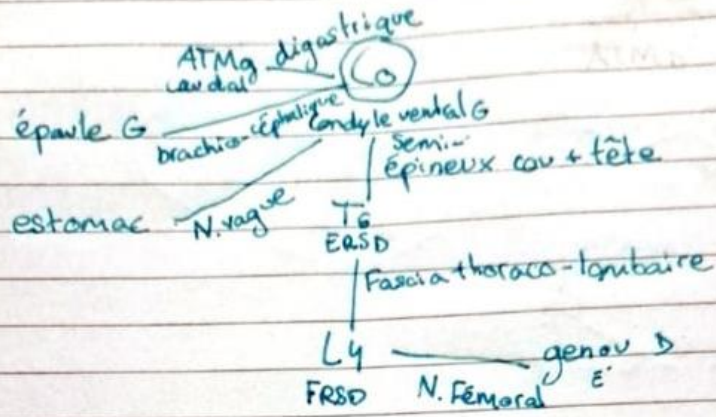 ATMg digastrique
caudal
Co
épaule G brachio-céphalique condyle ventral G
semi-
épineux cou + tête
estomac N. vague T6
ERSD
Fascia thoraco-lombaire
L4 genou D
E
FRSD N. Fémoral